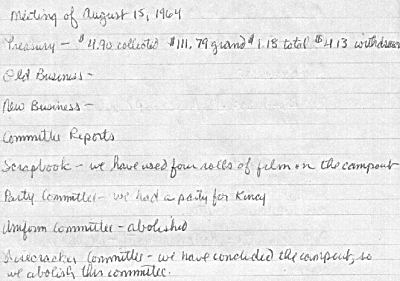 Meeting of August 15, 1964
Treasury - $4.90 collected $111.79 grand $1.18 total $4.13 withdrawn
Old Business -
New Business -
Committee Reports
Scrapbook - we have used four rolls of film on the campout
Party Committee - we had a party for
Uniform Committee - abolished
Firecracker Committee - we have concluded the campout, so
we abolish this committee.